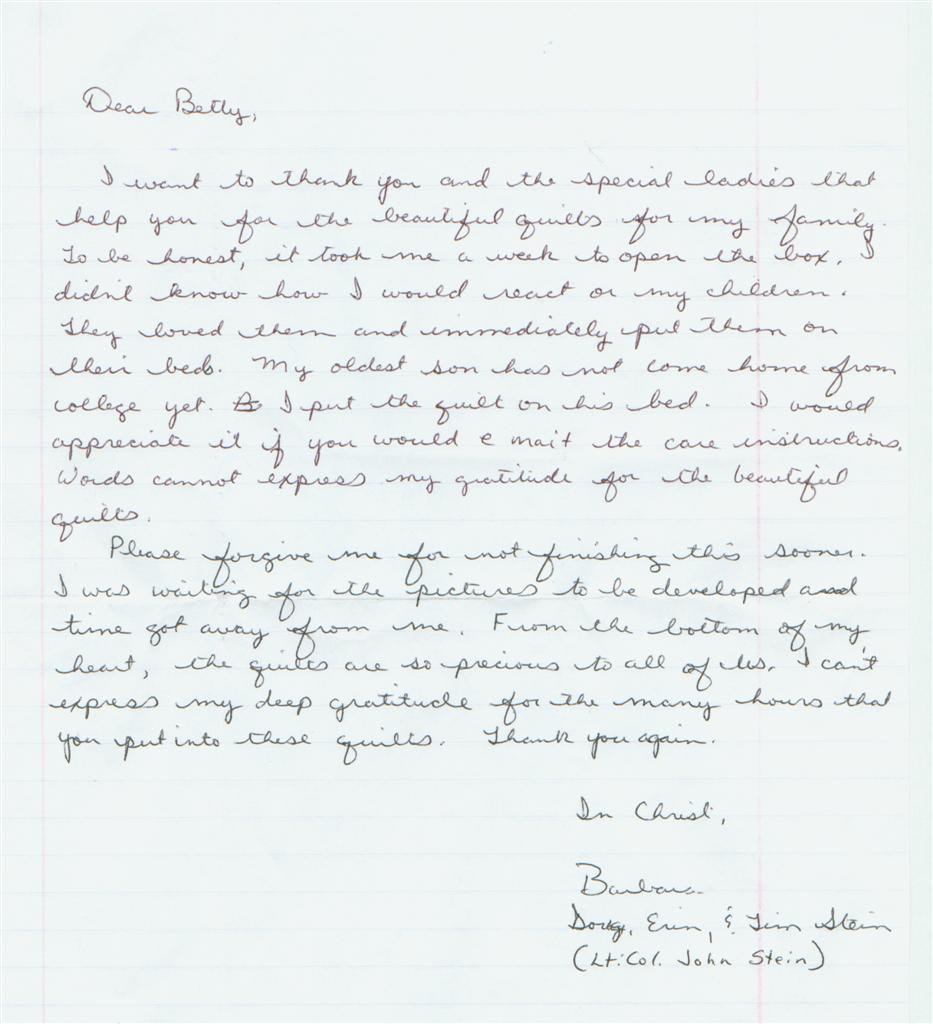 Dear Betty,
I want to thank you and the special ladies that
help you for the beautiful quilts for my family.
To be honest, it took me a week to open the box. I
didn't know how I would react or my children.
They loved them and immediately put them on
their beds. My oldest son has not come home from
college yet. I put the quilt on his bed. I would
appreciate it if you would e mail the care instructions.
Words cannot express my gratitude for the beautiful
quilts.
Please forgive me for not finishing this sooner.
I was waiting for the pictures to be developed and
time got away from me. From the bottom of my
heart, the quilts are so precious to all of us. I can't
express my deep gratitude for the many hours that
you put into these quilts. Thank you again.
In Christ,
Barbara
Doug, Erin, & Tim Stein
(Lt. Col. John Stein)